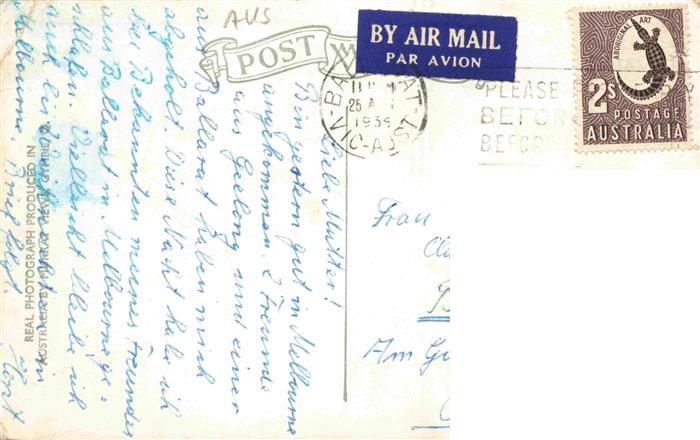 AUS
POST
BY AIR MAIL
PAR AVION
ABORIGINAL ART
2s POSTAGE
AUSTRALIA
PLEASE
BEFOR
BEFORE
25 A
VIC-A
Liebe Mutter!
Bin gestern gut in Melbourne
angekommen. 2 Freunde
aus Geelong und einer
aus Ballarat haben mich
abgeholt. Diese Nacht habe ich
bei Bekannten meines Freundes
aus Ballarat in Melbourne ge=
schlafen. Vielleicht bleibe ich
auch in
Melbourne. Brief folgt.
Horst
Frau
Am
REAL PHOTOGRAPH PRODUCED IN
AUSTRALIA BY MURRAY VIEWS, GYMPIE, Q.